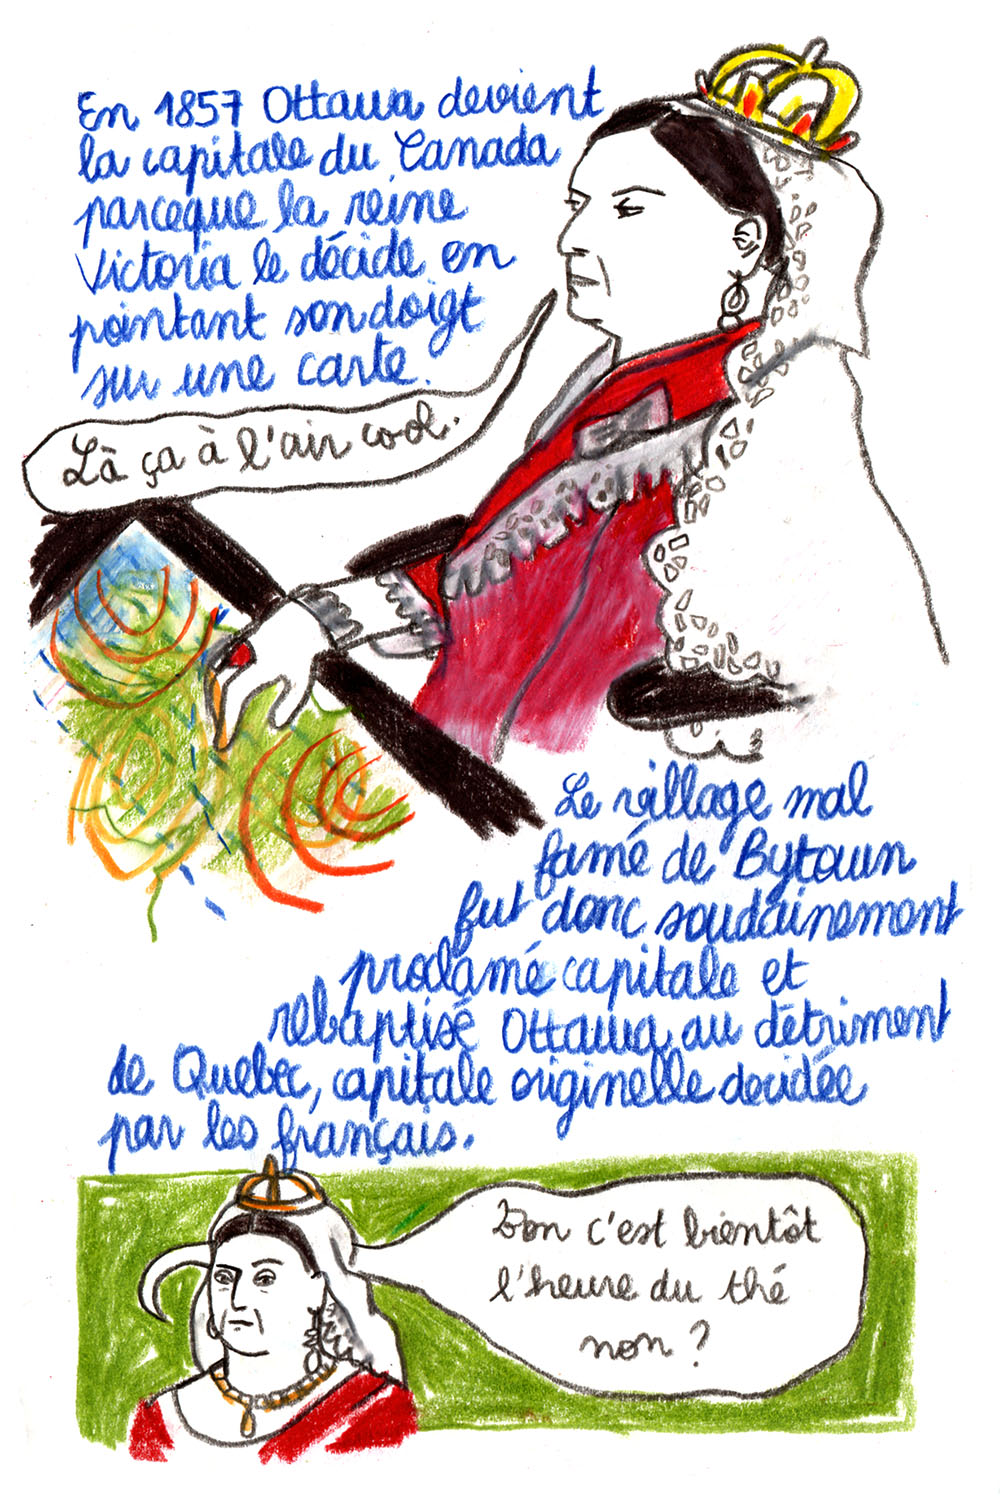 En 1857 Ottawa devient
la capitale du Canada
parceque la reine
Victoria le décide en
pointant son doigt
sur une carte.
Là ça à l'air cool.
Le village mal
famé de Bytown
fut donc soudainement
proclamé capitale et
rebaptisé Ottawa au détriment
de Quebec, capitale originelle decidée
par les français.
Bon c'est bientôt
l'heure du thé
non ?